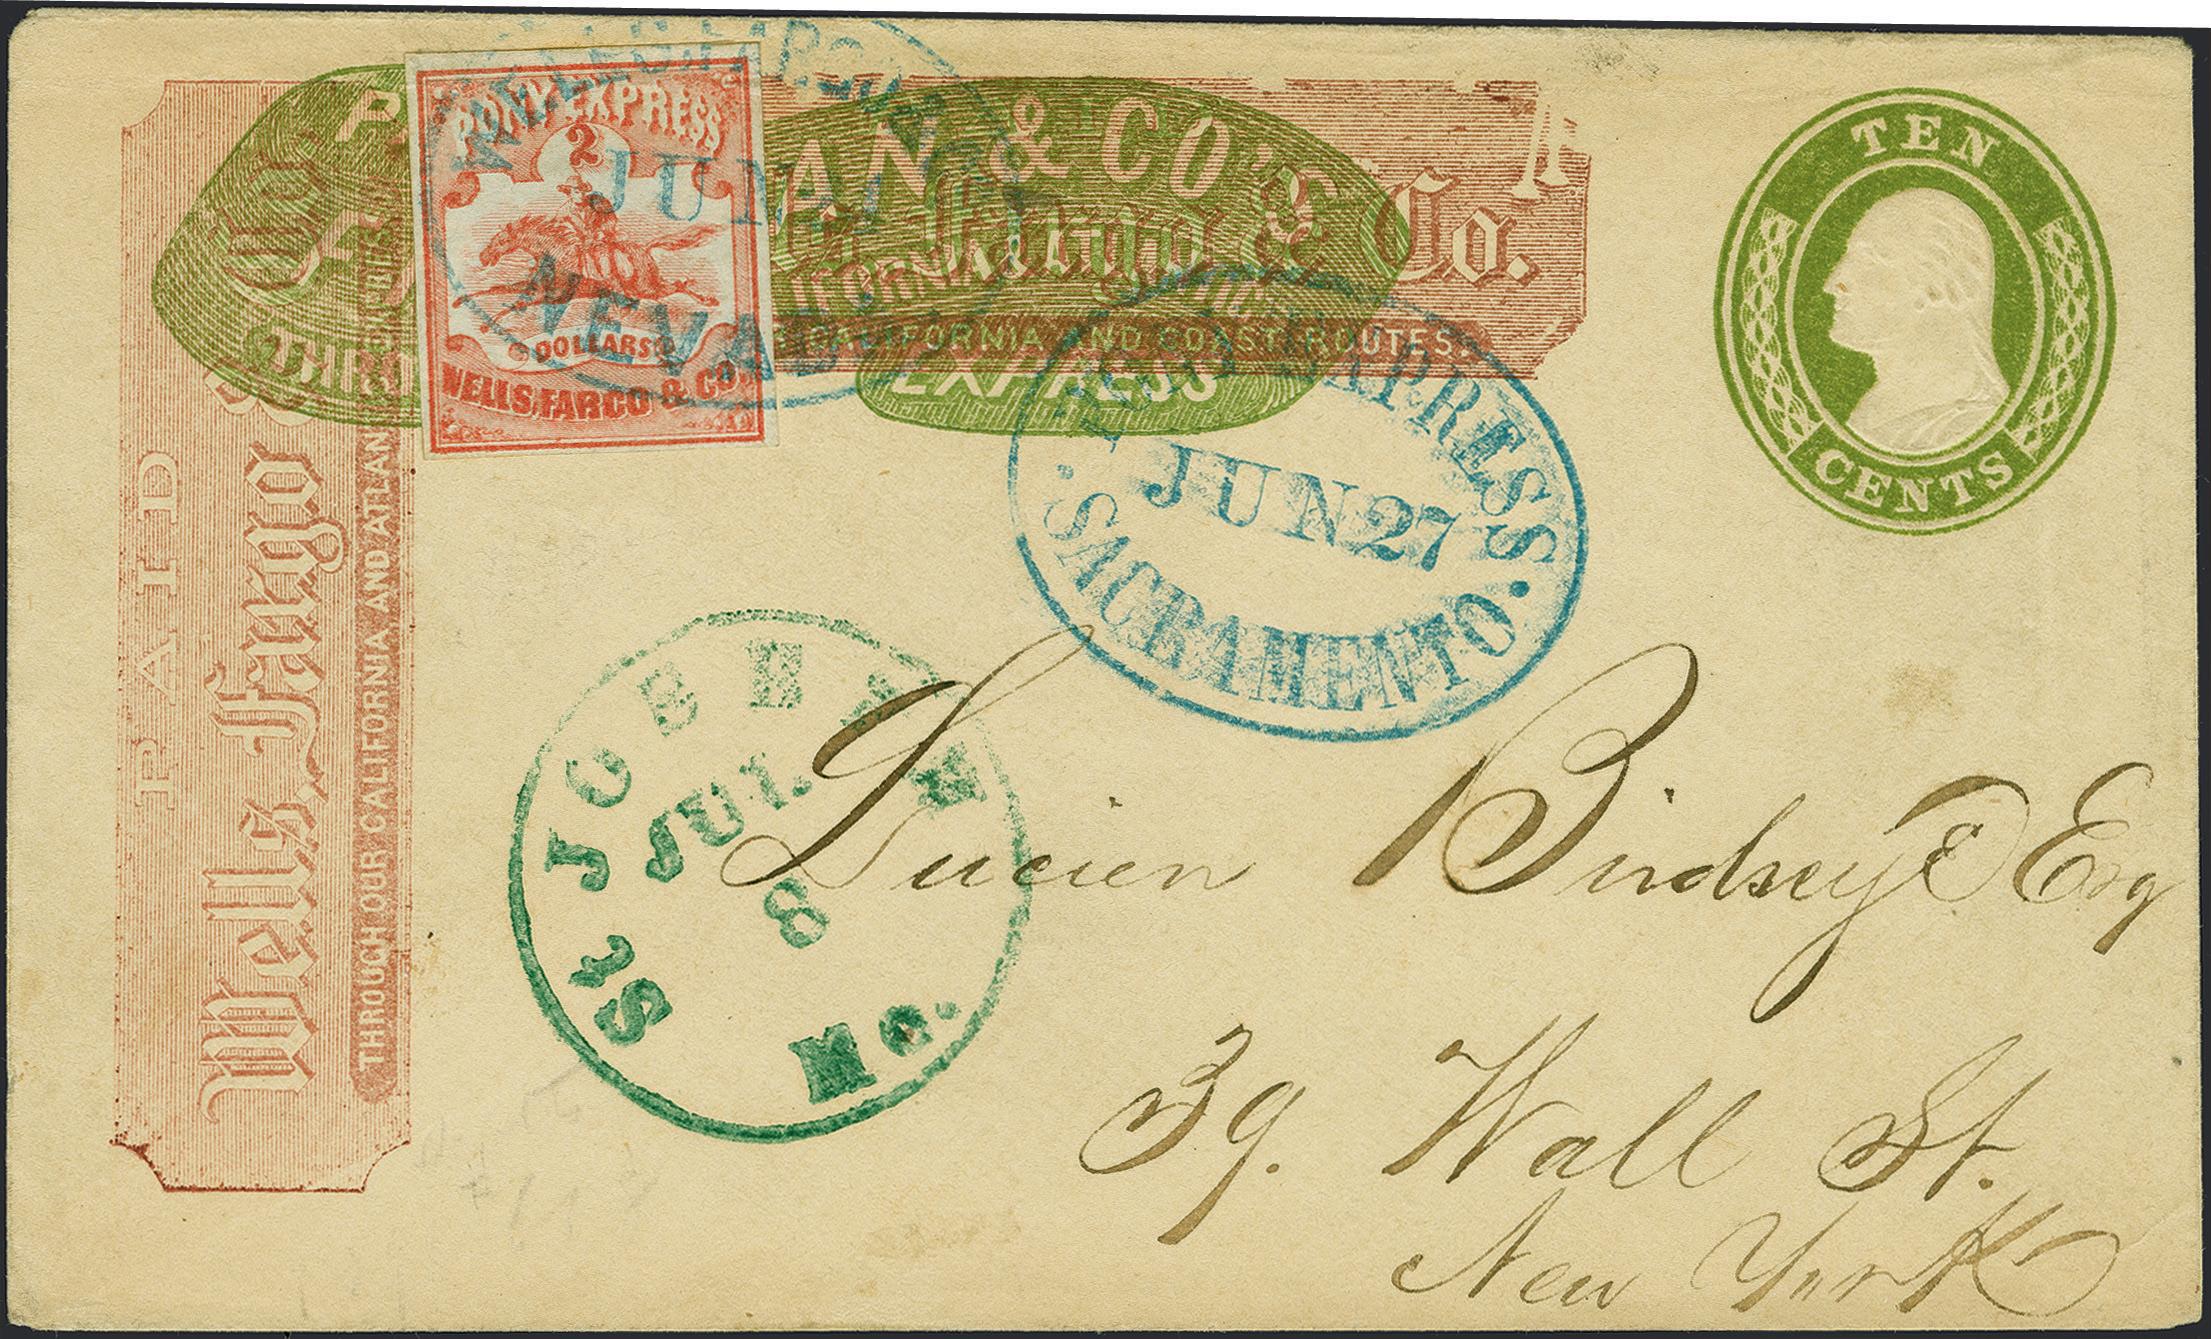 PAID
Wells, Fargo
THROUGH OUR CALIFORNIA AND ATLAN
PONY EXPRESS
2
DOLLARS
WELLS, FARGO & CO.
WELLS FARGO
JUN
NEVADA
AN & CO'S
Fargo & Co.
CALIFORNIA & ATLANTIC
CALIFORNIA AND COAST ROUTES.
EXPRESS
TEN
CENTS
PONY EXPRESS.
JUN 27
SACRAMENTO.
St JOSEPH
JUL
8
Mo.
Lucien Birdseye Esq
39. Wall St.
New York